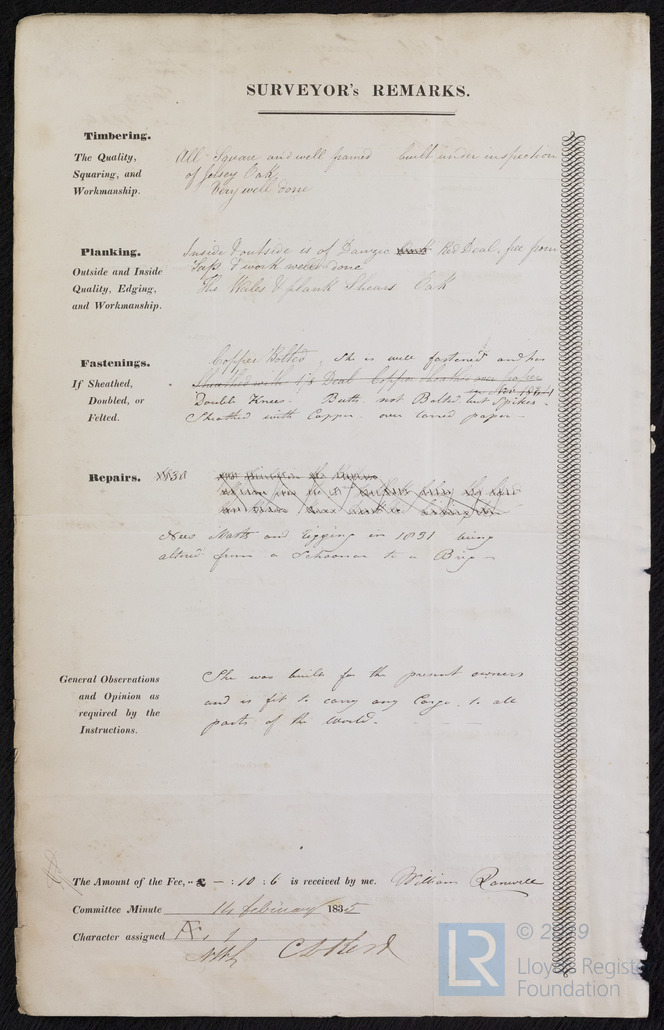 SURVEYOR's REMARKS.
Timbering.
The Quality, Squaring, and Workmanship.
All Square and well framed built under inspection
of Jersey Oak
Very well done
Planking.
Outside and Inside Quality, Edging, and Workmanship.
Inside & outside is of Danzic Red Deal. free from
Saps & work well done
The Wales & plank Shears Oak
Fastenings.
If Sheathed, Doubled, or Felted.
Copper Bolted, She is well fastened and has
Sheathed with 1/2 Deal Copper Sheathed over paper
in Nov 1834
Double Knees. Butts not Bolted but Spikes.
Sheathed with Copper over tarred paper
Repairs.
New Masts and Rigging in 1831 being
altered from a Schooner to a Brig
General Observations and Opinion as required by the Instructions.
She was built for the present owners
and is fit to carry any Cargo to all
parts of the World.
The Amount of the Fee, .. £ — : 10 : 6 is received by me. William
Committee Minute 14 February 1835
Character assigned Æ. 1
LR © 2019
Lloyd's Regist
Foundation